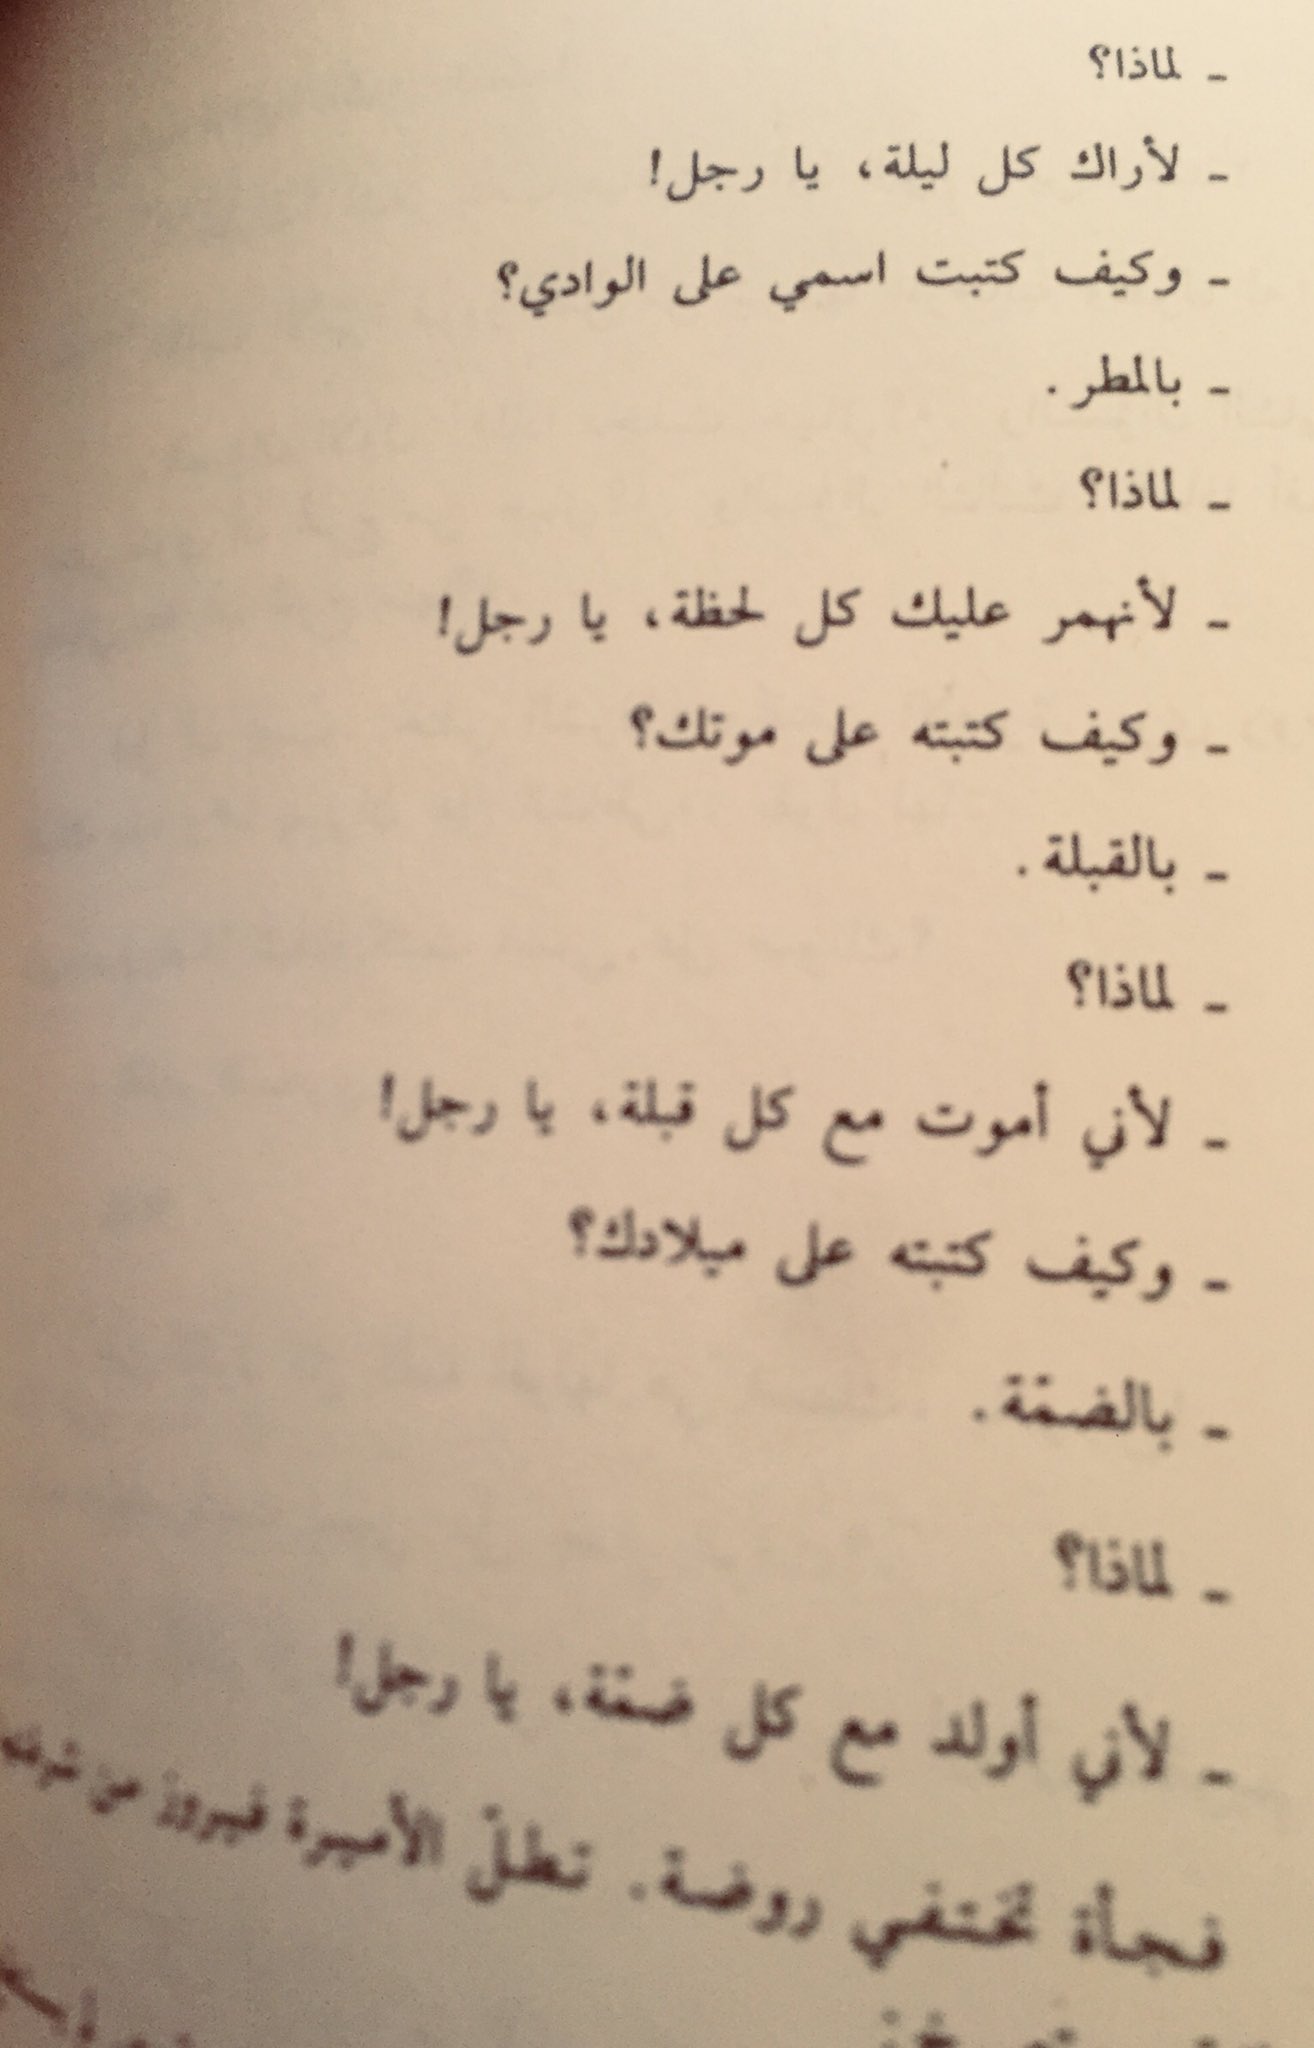 - لماذا؟
- لأراك كل ليلة، يا رجل!
- وكيف كتبت اسمي على الوادي؟
- بالمطر.
- لماذا؟
- لأنهمر عليك كل لحظة، يا رجل!
- وكيف كتبته على موتك؟
- بالقبلة.
- لماذا؟
- لأني أموت مع كل قبلة، يا رجل!
- وكيف كتبته على ميلادك؟
- بالضمّة.
- لماذا؟
- لأني أولد مع كل ضمّة، يا رجل!
فجأة تختفي روضة. تطلّ الأميرة فيروز من